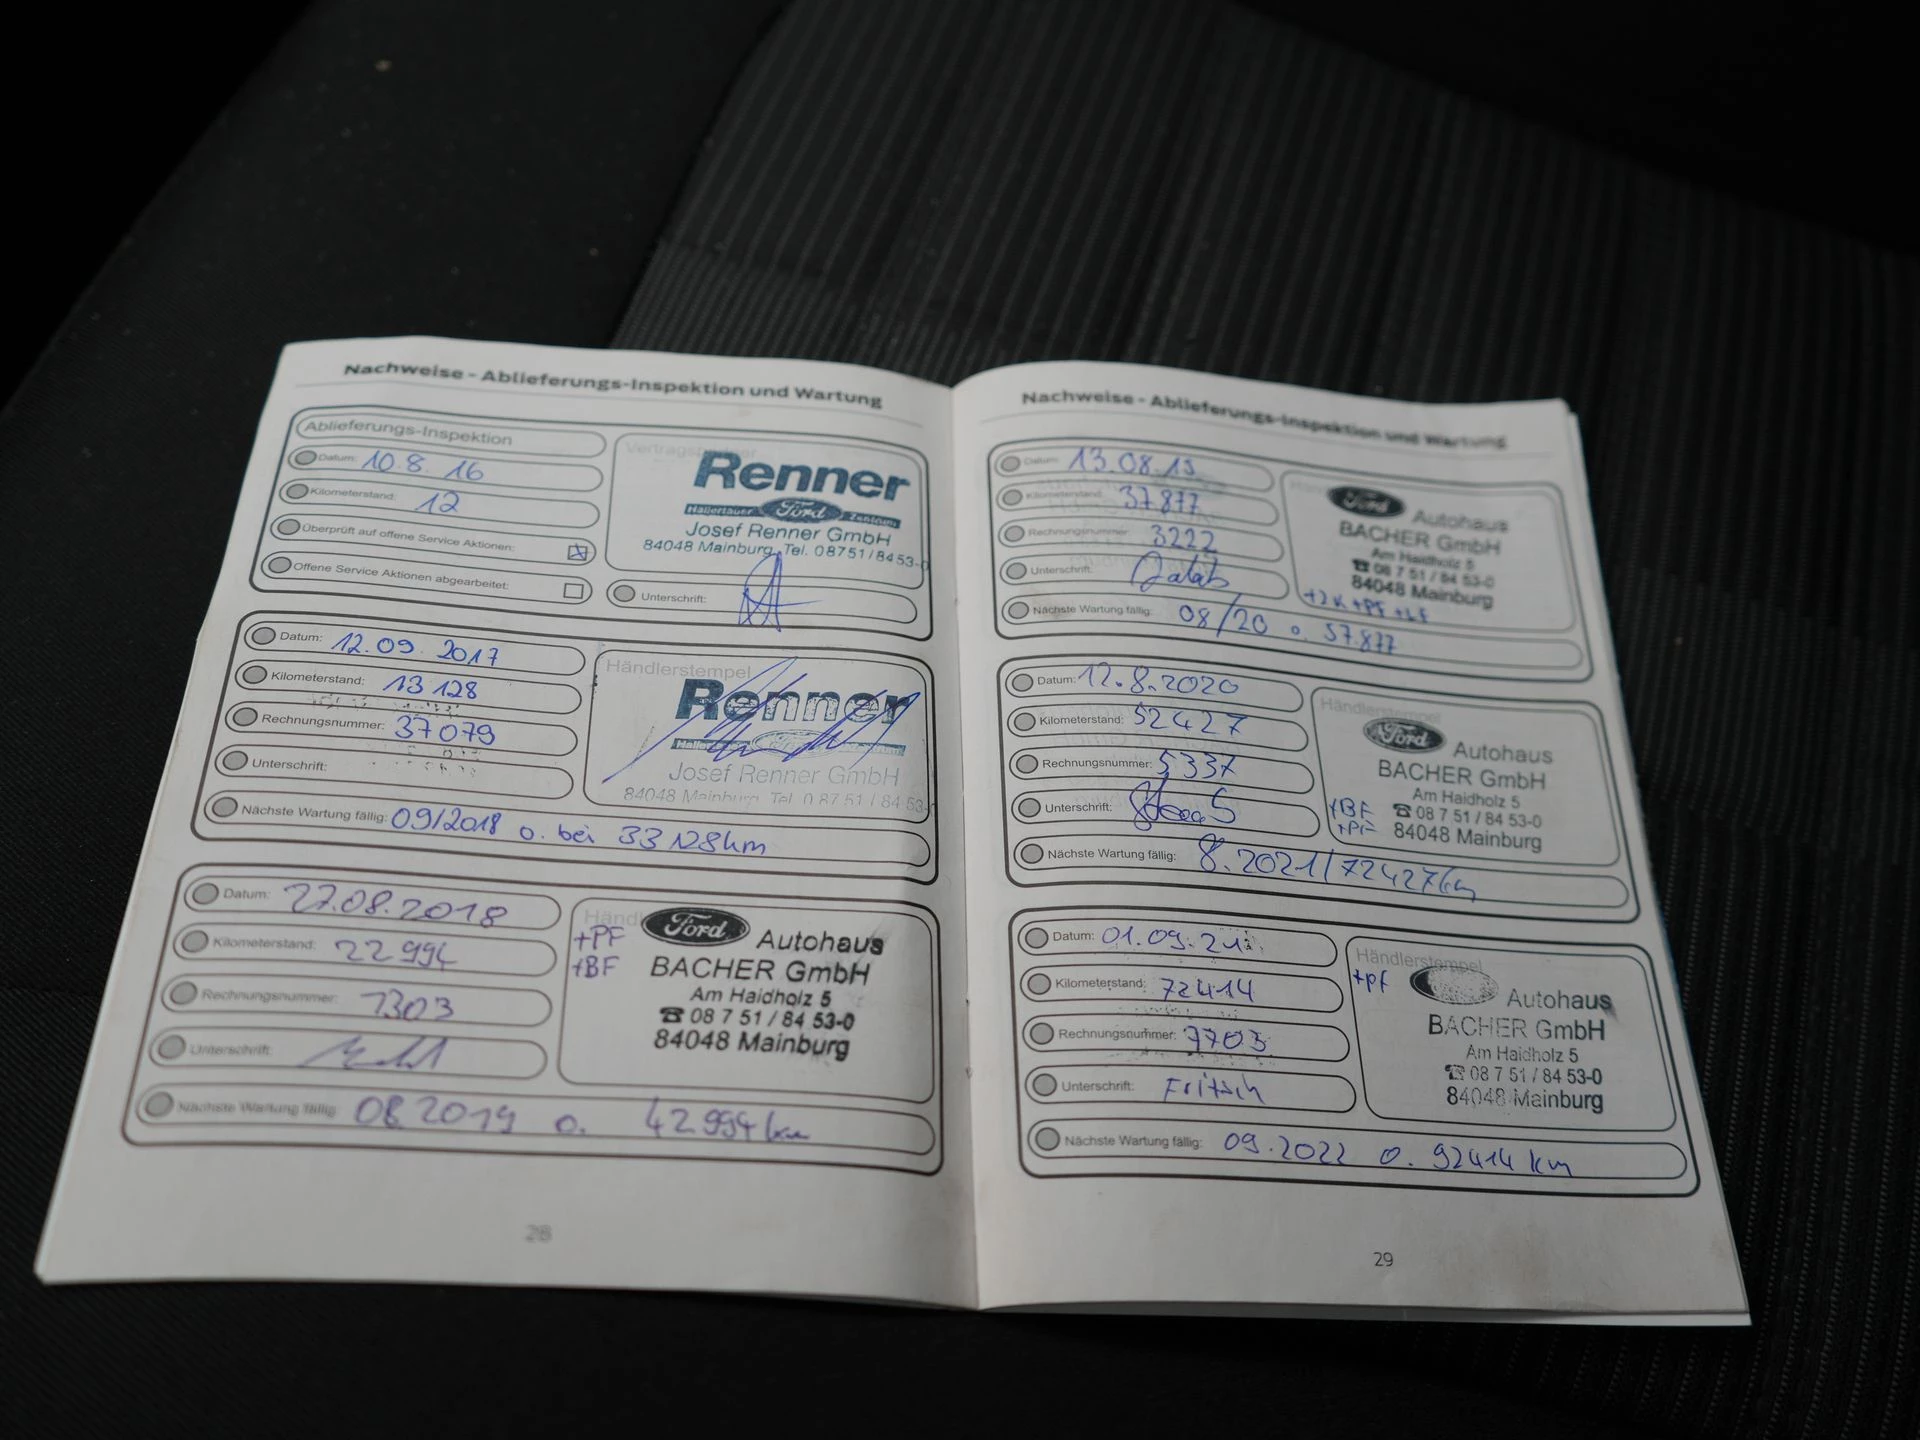 Nachweise - Ablieferungs-Inspektion und Wartung
Ablieferungs-Inspektion
Datum: 10.8.16
Kilometerstand: 12
Überprüft auf offene Service Aktionen:
Offene Service Aktionen abgearbeitet:
Renner
Hallertauer Ford Zentrum
Josef Renner GmbH
84048 Mainburg, Tel. 08751/8453-0
Unterschrift:
Datum: 12.09.2017
Kilometerstand: 13128
Rechnungsnummer: 37079
Unterschrift:
Nächste Wartung fällig: 09/2018 o. bei 33128km
Händlerstempel
Renner
Josef Renner GmbH
84048 Mainburg, Tel. 08751/8453-
Datum: 27.08.2018
Kilometerstand: 22994
Rechnungsnummer: 1303
Unterschrift:
Nächste Wartung fällig: 08 2019 o. 42994km
+PF
+BF
Ford Autohaus
BACHER GmbH
Am Haidholz 5
☎ 08 7 51 / 84 53-0
84048 Mainburg
28
Nachweise - Ablieferungs-Inspektion und Wartung
Datum: 13.08.19
Kilometerstand: 37.877
Rechnungsnummer: 3222
Unterschrift:
Nächste Wartung fällig: 08/20 o. 57.877
Ford Autohaus
BACHER GmbH
Am Haidholz 5
☎ 08 7 51 / 84 53-0
84048 Mainburg
Datum: 12.8.2020
Kilometerstand: 52427
Rechnungsnummer: 5337
Unterschrift:
Nächste Wartung fällig: 8.2021/72427km
Händlerstempel
Ford Autohaus
BACHER GmbH
Am Haidholz 5
☎ 08 7 51 / 84 53-0
84048 Mainburg
+BF
+PF
Datum: 01.09.21
Kilometerstand: 72414
Rechnungsnummer: 7703
Unterschrift: Fritsch
Nächste Wartung fällig: 09.2022 o. 92414 km
Händlerstempel
+PF
Autohaus
BACHER GmbH
Am Haidholz 5
☎ 08 7 51 / 84 53-0
84048 Mainburg
29